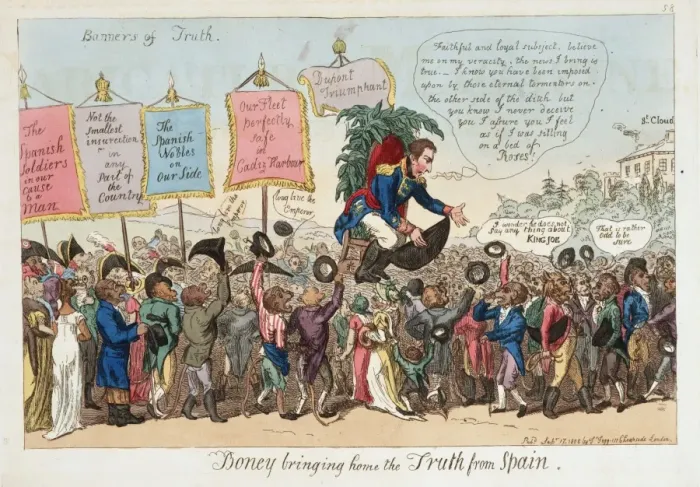 58
Banners of Truth.
The
Spanish
Soldiers
in our
cause
to a
Man
Not the
Smallest
insurection
in
any
Part of
the
Country
The
Spanish
Nobles
on
Our Side
Our Fleet
perfectly
Safe
in
Cadiz Harbour
Dupont
Triumphant
Faithful and loyal subject, believe
me in my veracity, the news I bring is
true — I know you have been imposed
upon by those eternal tormentors on
the other side of the ditch but
you know I never deceive
you I assure you I feel
as if I was sitting
on a bed of
Roses!
St Cloud
long live the
Emperor
long live the
Emperor
I wonder he does not
say any thing about
KING JOE
That is rather
odd to be
sure
Boney bringing home the Truth from Spain.